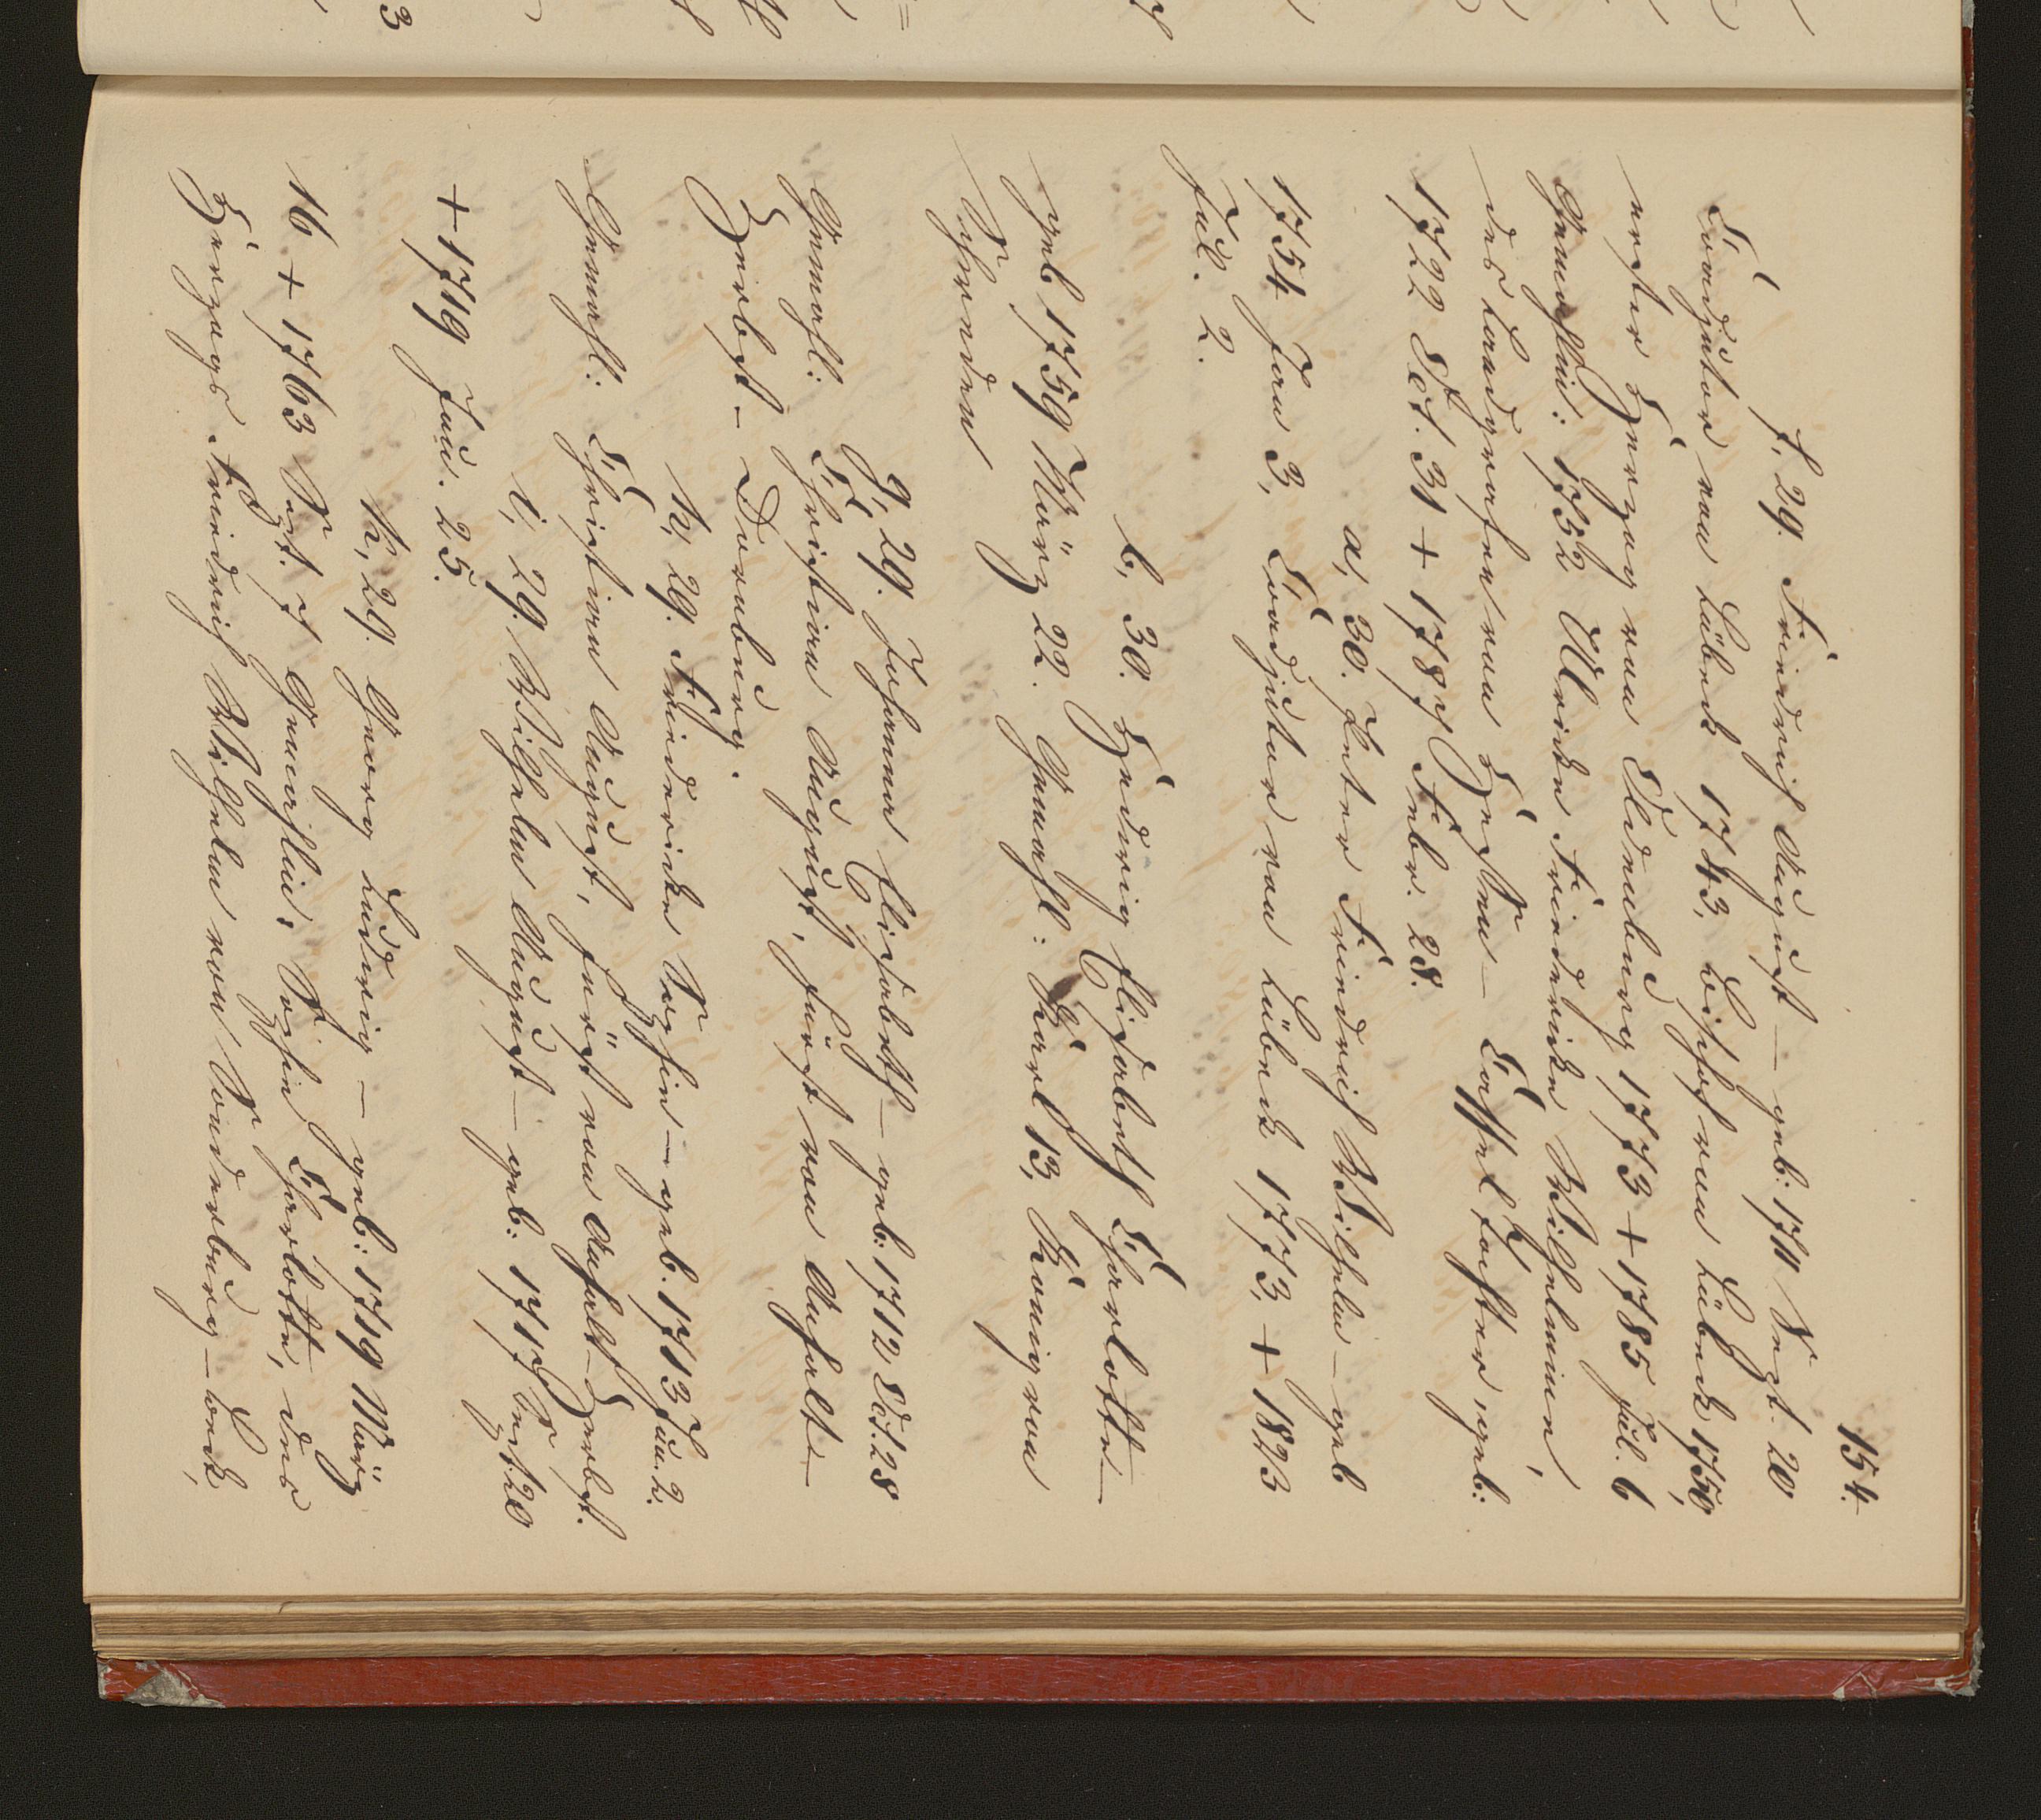 154.
f, 29. Friedrich August – geb: 1711 Sept. 20
Coadjutor von Lübeck 1743, Bischof von Lübeck 1750,
erster Herzog von Oldenburg 1773 + 1785 Jul. 6
Gemahlin: 1752 Ulrike Friederike Wilhelmine,
des Landgrafen von Hessen – Cassel Tochter, geb:
1722 Oct. 31 + 1787 Febr. 28.
a, 30. Peter Friedrich Wilhelm – geb
1754 Jan 3, Coadjutor von Lübeck 1773, + 1823
Jul. 2.
b, 30. Hedwig Elisabeth Charlotte –
geb 1759 März 22. Gemahl: Karl 13, König von
Schweden
g, 29. Johanna Elisabeth – geb: 1712 Oct. 28
Gemahl: Christian August, Fürst von Anhalt –
Zerbst – Dornburg.
h, 29. Friederike Sophie – geb. 1713 Jun. 2.
Gemahl: Christian August, Fürst von Anhalt – Zerbst.
i, 29. Wilhelm August – geb: 1717 Sept. 20
+ 1719 Jun. 25.
k, 29. Georg Ludwig – geb: 1719 März
16 + 1763 Sept. 7 Gemahlin: Sophie Charlotte, des
Herzogs Friedrich Wilhelm von Sonderburg – Beck,